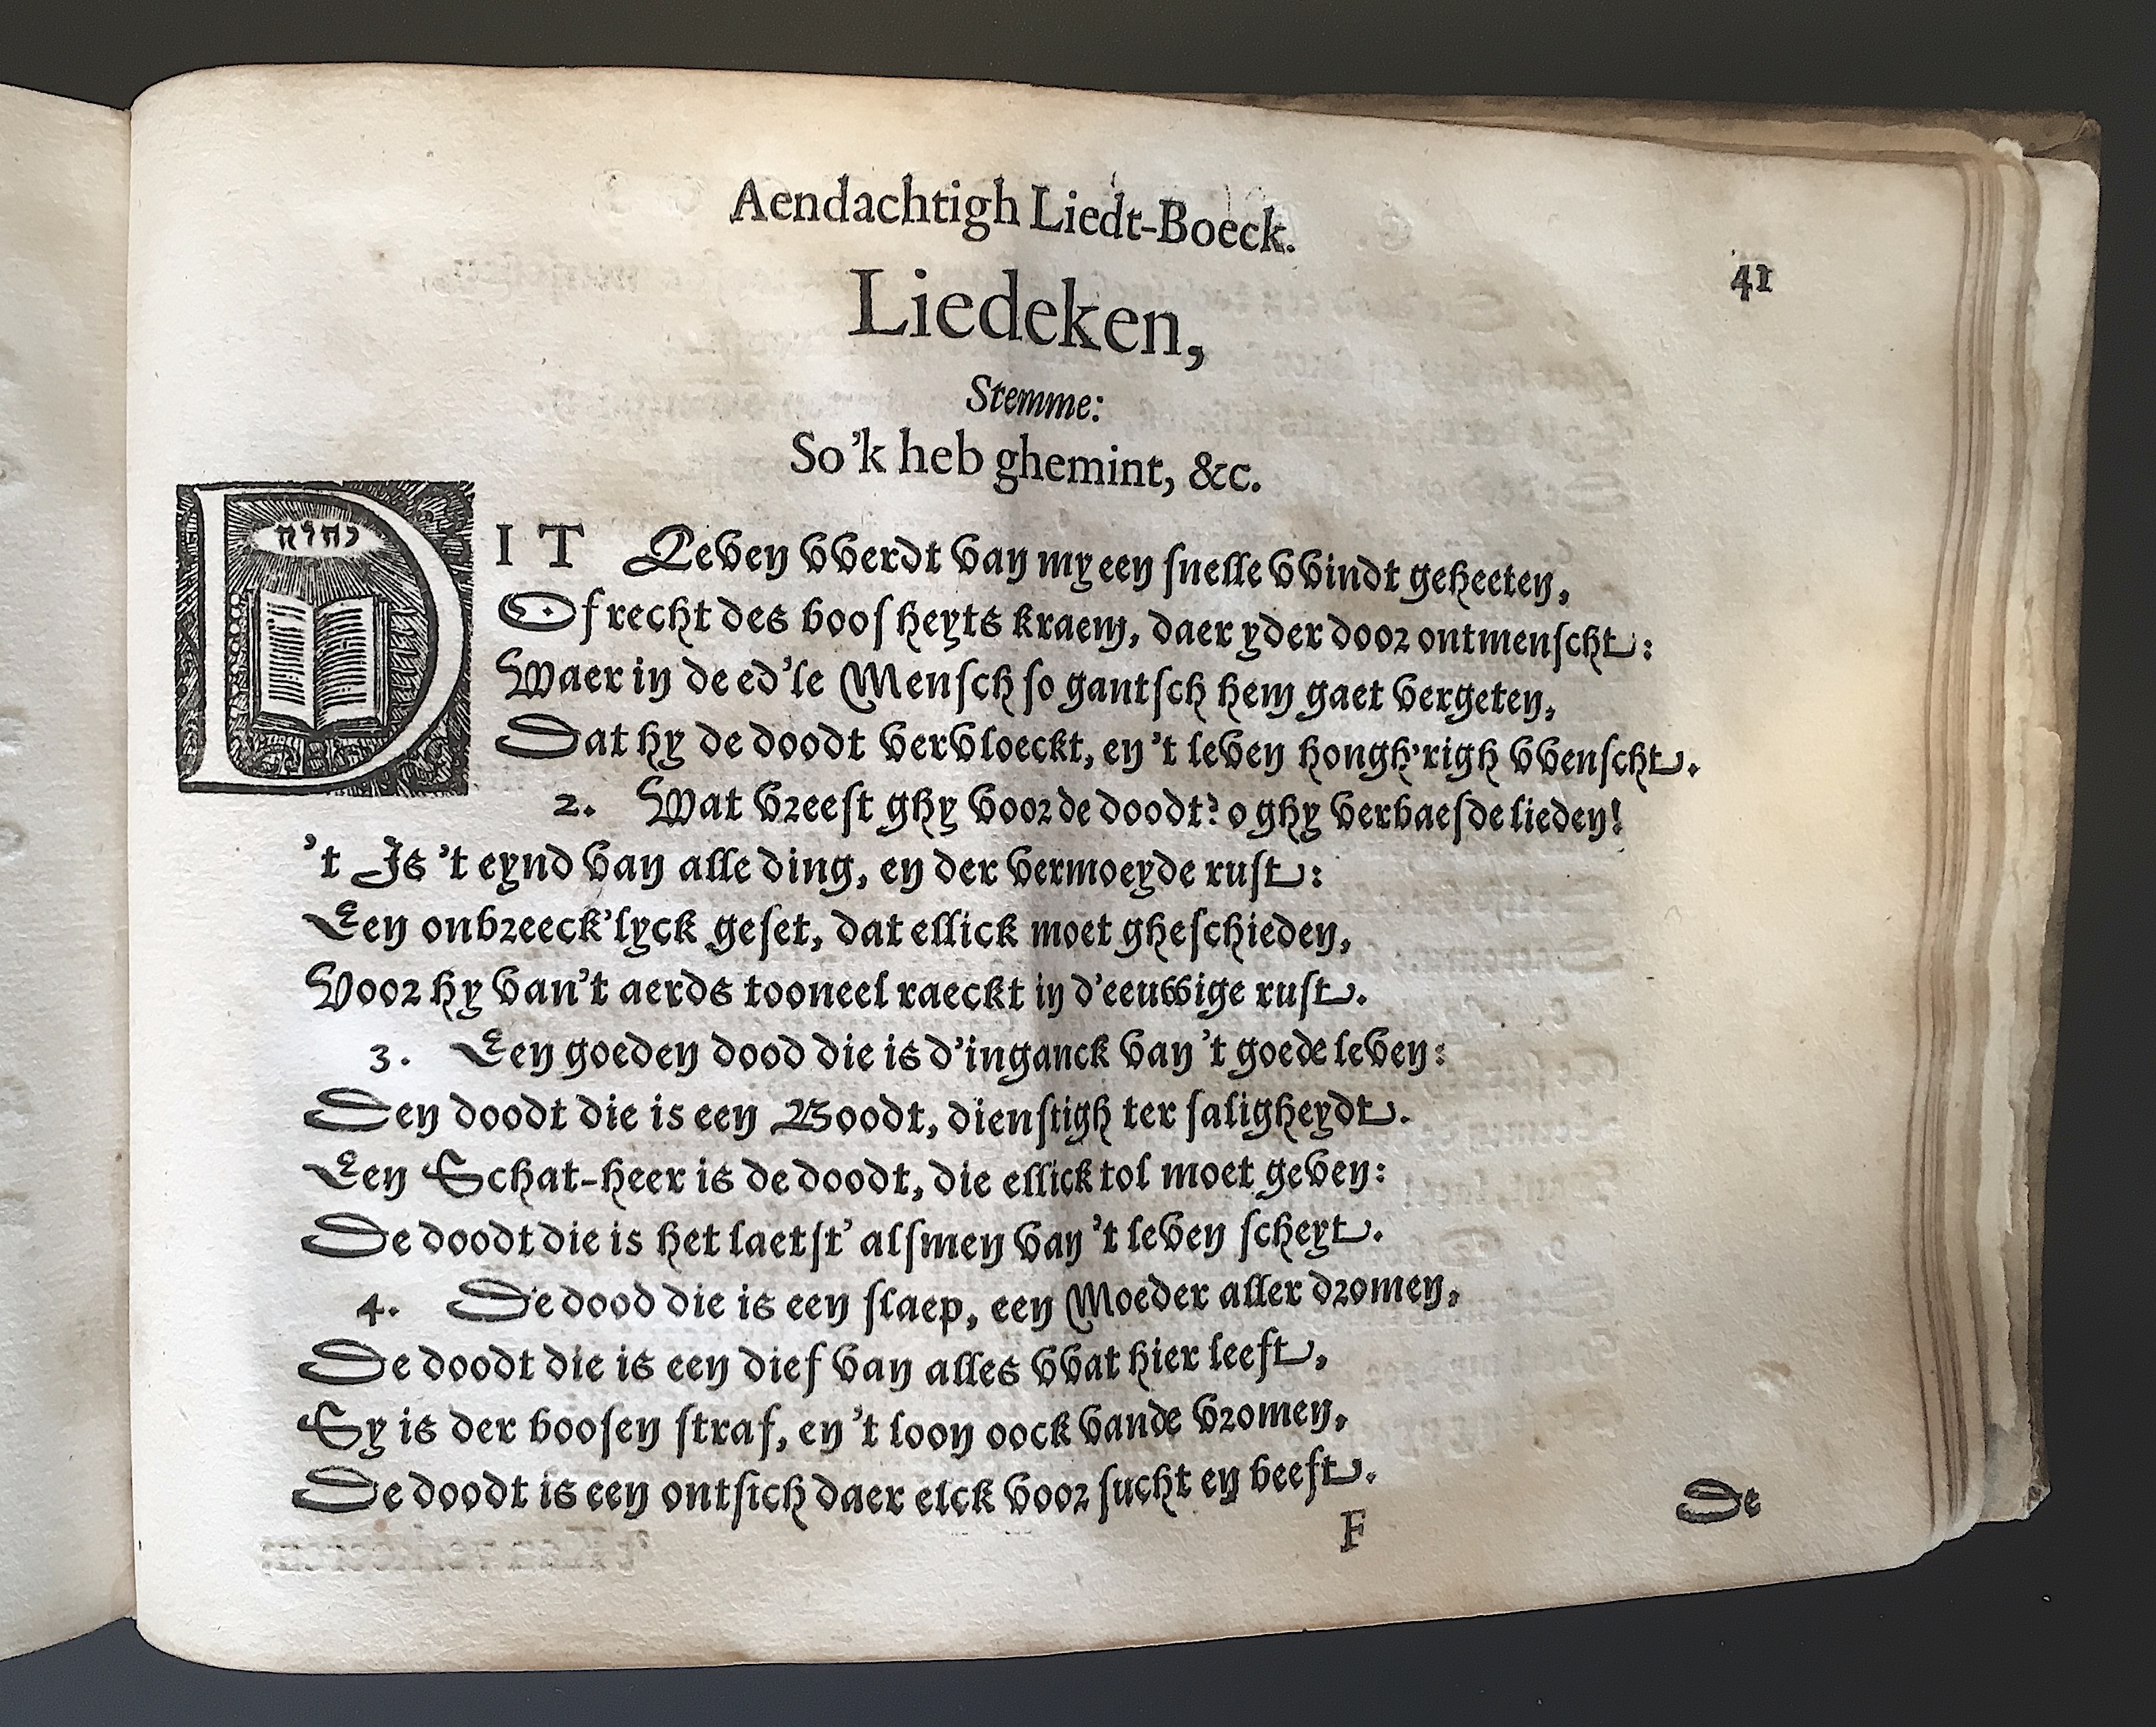 Aendachtigh Liedt-Boeck.
41
Liedeken,
Stemme:
So'k heb ghemint, &c.
יהוה
DIT Leven vverdt van my een snelle vvindt geheeten,
Of recht des boosheyts kraem, daer yder door ontmenscht:
Waer in de ed'le Mensch so gantsch hem gaet vergeten,
Dat hy de doodt vervloeckt, en 't leven hongh'righ vvenscht.
2. Wat vreest ghy voor de doodt? o ghy verbaesde lieden!
't Is 't eynd van alle ding, en der vermoeyde rust:
Een onbreeck'lyck geset, dat ellick moet gheschieden,
Voor hy van't aerds tooneel raeckt in d'eeuwige rust.
3. Een goeden dood die is d'inganck van 't goede leven:
Den doodt die is een Boodt, dienstigh ter saligheydt.
Een Schat-heer is de doodt, die ellick tol moet geven:
De doodt die is het laetst' alsmen van 't leven scheyt.
4. De dood die is een slaep, een Moeder aller dromen,
De doodt die is een dief van alles vvat hier leeft,
Sy is der boosen straf, en 't loon oock vande vromen,
De doodt is een ontsich daer elck voor sucht en beeft.
F
De